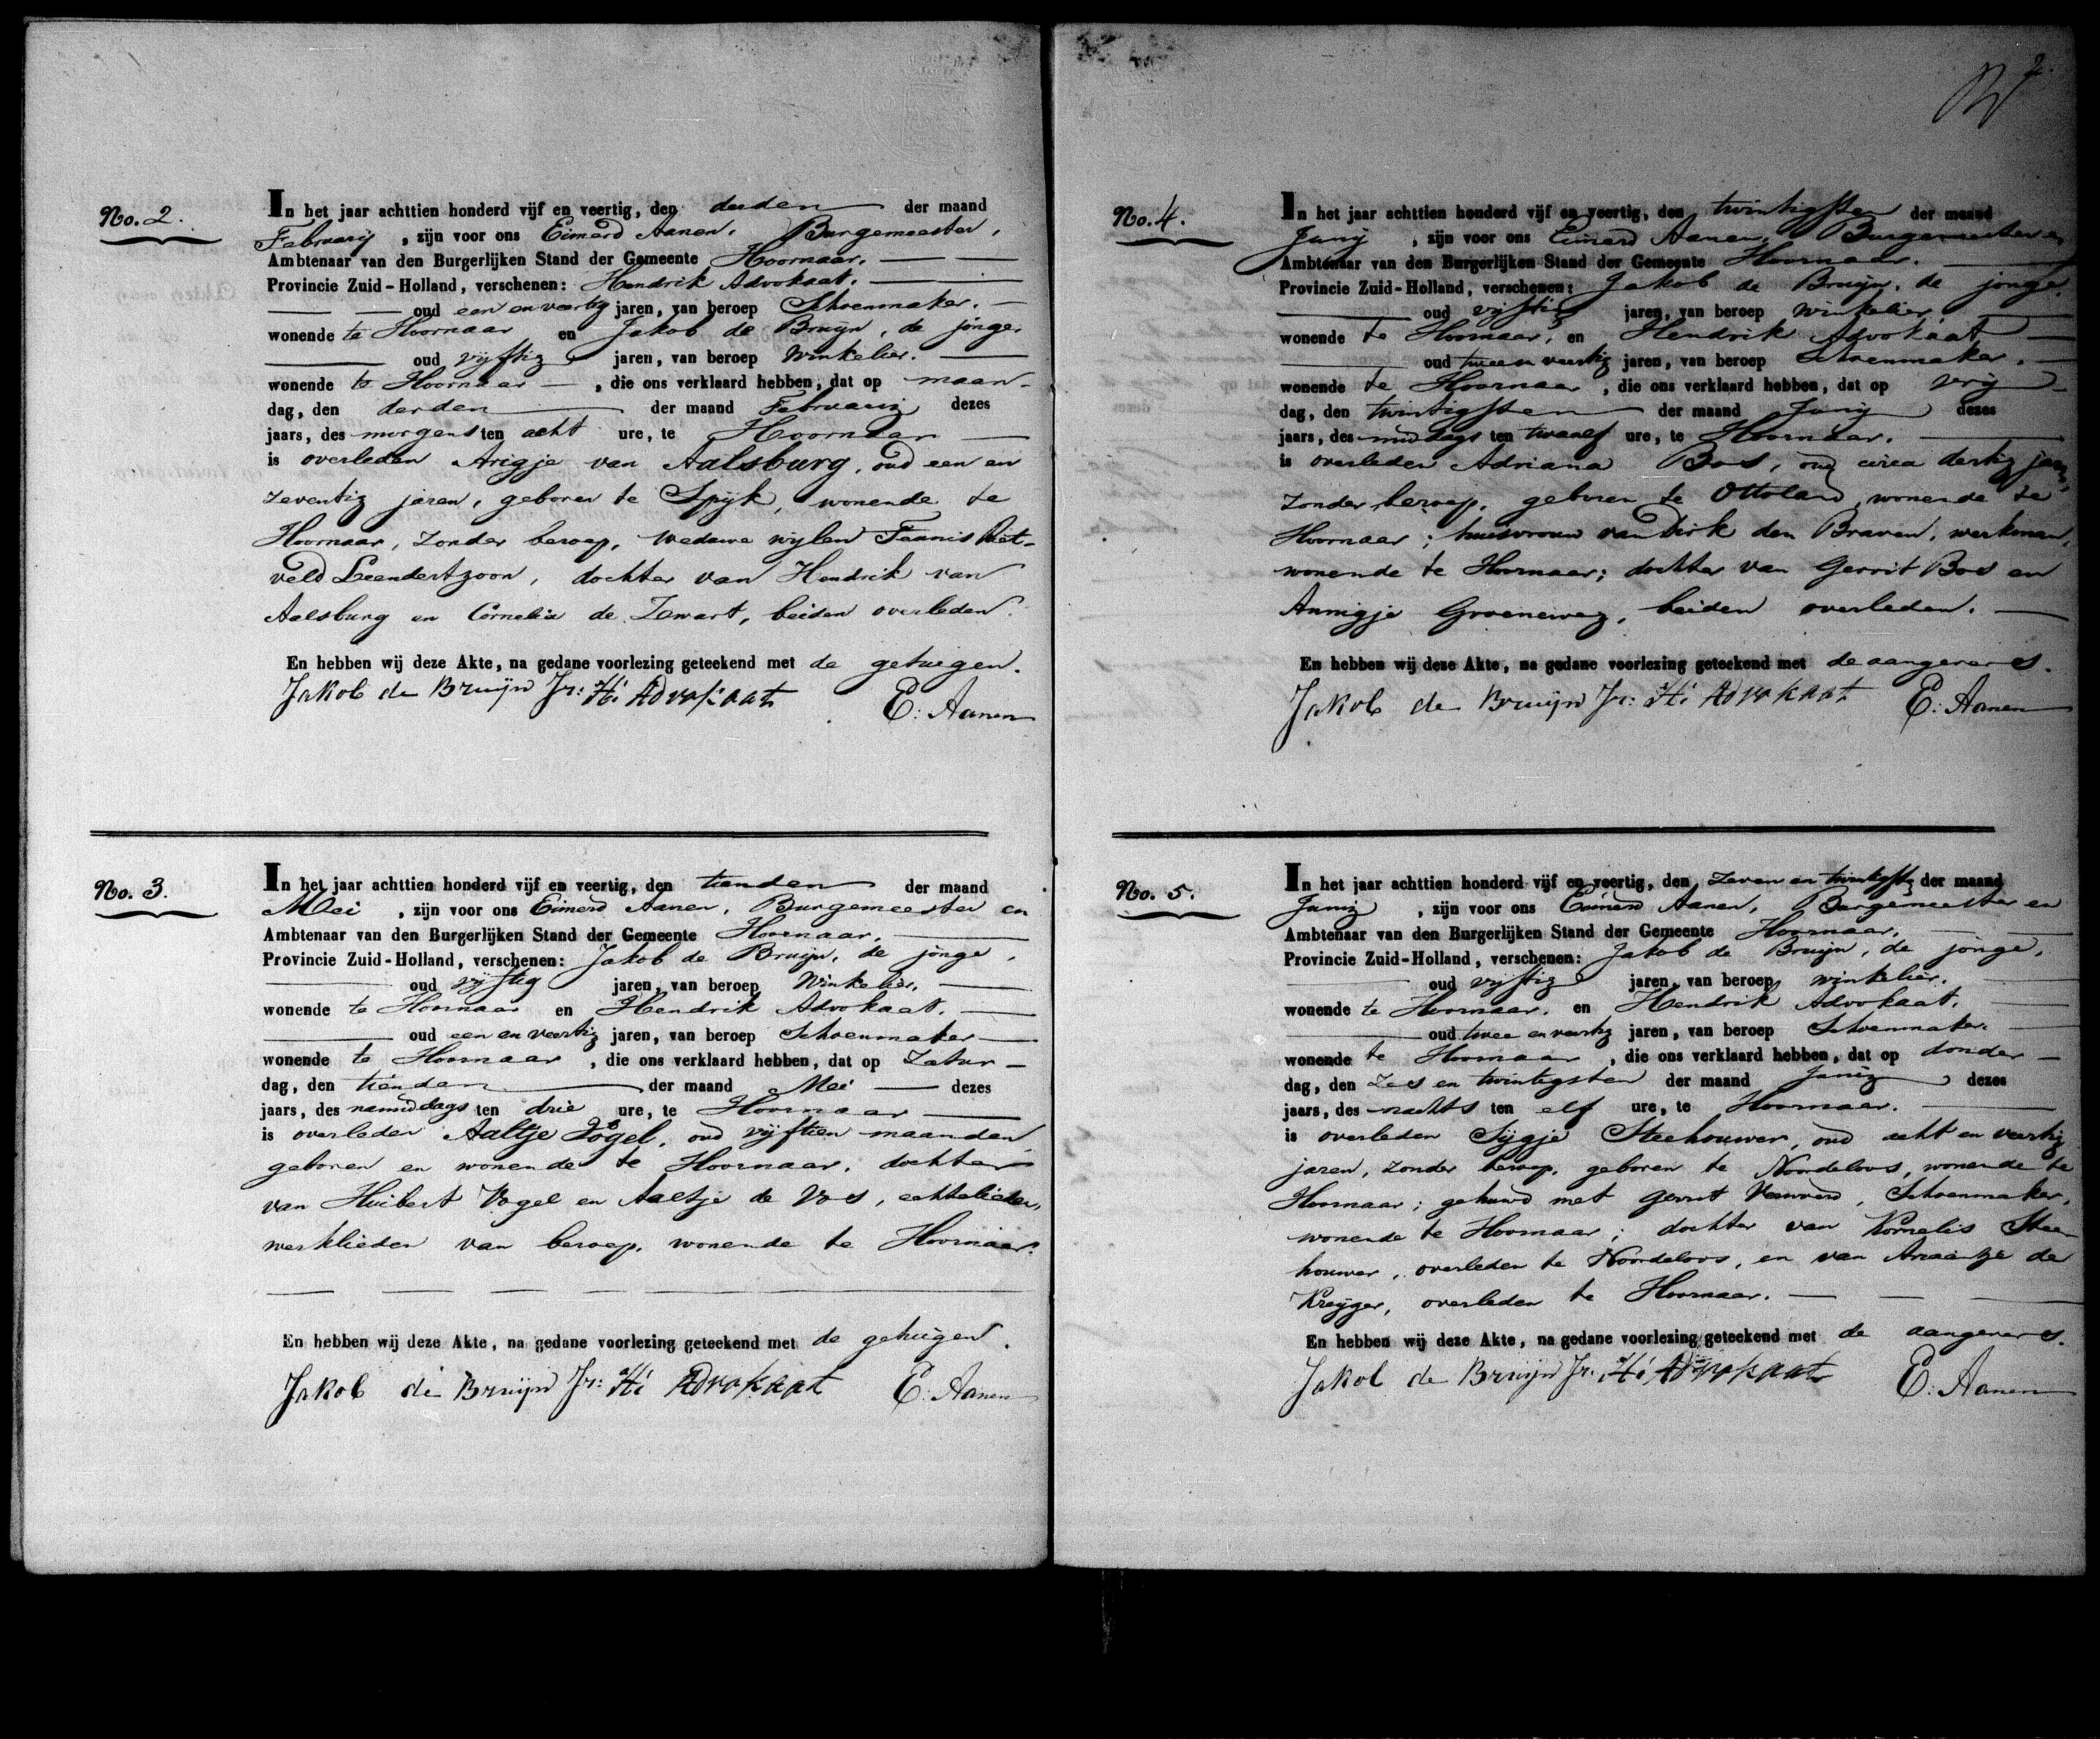 No. 2.
In het jaar achttien honderd vijf en veertig, den derden der maand
Februarij, zijn voor ons Eimerd Aanen, Burgemeester,
Ambtenaar van den Burgerlijken Stand der Gemeente Hoornaar.
Provincie Zuid-Holland, verschenen: Hendrik Advokaat,
oud een en veertig jaren, van beroep Schoenmaker.
wonende te Hoornaar en Jakob de Bruijn, de jonge,
oud vijftig jaren, van beroep Winkelier.
wonende te Hoornaar, die ons verklaard hebben, dat op maan-
dag, den derden der maand Februarij dezes
jaars, des morgens ten acht ure, te Hoornaar
is overleden Arigje van Aalsburg, oud een en
zeventig jaren, geboren te Spijk, wonende te
Hoornaar, zonder beroep, weduwe wijlen Teunis Riet-
veld Leendertzoon, dochter van Hendrik van
Aalsburg en Cornelia de Zwart, beiden overleden.
En hebben wij deze Akte, na gedane voorlezing geteekend met de getuigen.
Jakob de Bruijn Jr: H: Advokaat E: Aanen
No. 3.
In het jaar achttien honderd vijf en veertig, den tienden der maand
Mei, zijn voor ons Eimerd Aanen, Burgemeester en
Ambtenaar van den Burgerlijken Stand der Gemeente Hoornaar,
Provincie Zuid-Holland, verschenen: Jakob de Bruijn, de jonge,
oud vijftig jaren, van beroep Winkelier,
wonende te Hoornaar en Hendrik Advokaat,
oud een en veertig jaren, van beroep Schoenmaker
wonende te Hoornaar, die ons verklaard hebben, dat op Zatur-
dag, den tienden der maand Mei dezes
jaars, des namiddags ten drie ure, te Hoornaar
is overleden Aaltje Vogel, oud vijftien maanden
geboren en wonende te Hoornaar, dochter
van Huibert Vogel en Aaltje de Vos, echtelieden,
werklieden van beroep, wonende te Hoornaar.
En hebben wij deze Akte, na gedane voorlezing geteekend met de getuigen.
Jakob de Bruijn Jr: H: Advokaat E: Aanen
2.
No. 4.
In het jaar achttien honderd vijf en veertig, den twintigsten der maand
Junij, zijn voor ons Eimerd Aanen, Burgemeester en
Ambtenaar van den Burgerlijken Stand der Gemeente Hoornaar.
Provincie Zuid-Holland, verschenen: Jakob de Bruijn, de jonge,
oud vijftig jaren, van beroep winkelier,
wonende te Hoornaar, en Hendrik Advokaat
oud twee en veertig jaren, van beroep Schoenmaker,
wonende te Hoornaar, die ons verklaard hebben, dat op vrij-
dag, den twintigsten der maand Junij dezes
jaars, des middags ten twaalf ure, te Hoornaar.
is overleden Adriana Bos, oud circa dertig jaar,
zonder beroep, geboren te Ottoland, wonende te
Hoornaar; huisvrouw van Dirk den Braven, werkman,
wonende te Hoornaar; dochter van Gerrit Bos en
Annigje Groeneweg, beiden overleden.
En hebben wij deze Akte, na gedane voorlezing geteekend met de aangevers.
Jakob de Bruijn Jr: H: Advokaat E: Aanen
No. 5.
In het jaar achttien honderd vijf en veertig, den zeven en twintigsten der maand
Junij, zijn voor ons Eimerd Aanen, Burgemeester en
Ambtenaar van den Burgerlijken Stand der Gemeente Hoornaar,
Provincie Zuid-Holland, verschenen: Jakob de Bruijn, de jonge,
oud vijftig jaren, van beroep winkelier,
wonende te Hoornaar, en Hendrik Advokaat,
oud twee en veertig jaren, van beroep Schoenmaker
wonende te Hoornaar, die ons verklaard hebben, dat op donder-
dag, den zes en twintigsten der maand Junij dezes
jaars, des nachts ten elf ure, te Hoornaar.
is overleden Sijgje Steehouwer, oud acht en veertig
jaren, zonder beroep, geboren te Noordeloos, wonende te
Hoornaar; gehuwd met Gerrit Verwoerd, Schoenmaker,
wonende te Hoornaar; dochter van Kornelis Stee-
houwer, overleden te Noordeloos, en van Ariaantje de
Kreijger, overleden te Hoornaar.
En hebben wij deze Akte, na gedane voorlezing geteekend met de aangevers.
Jakob de Bruijn Jr: H: Advokaat E: Aanen